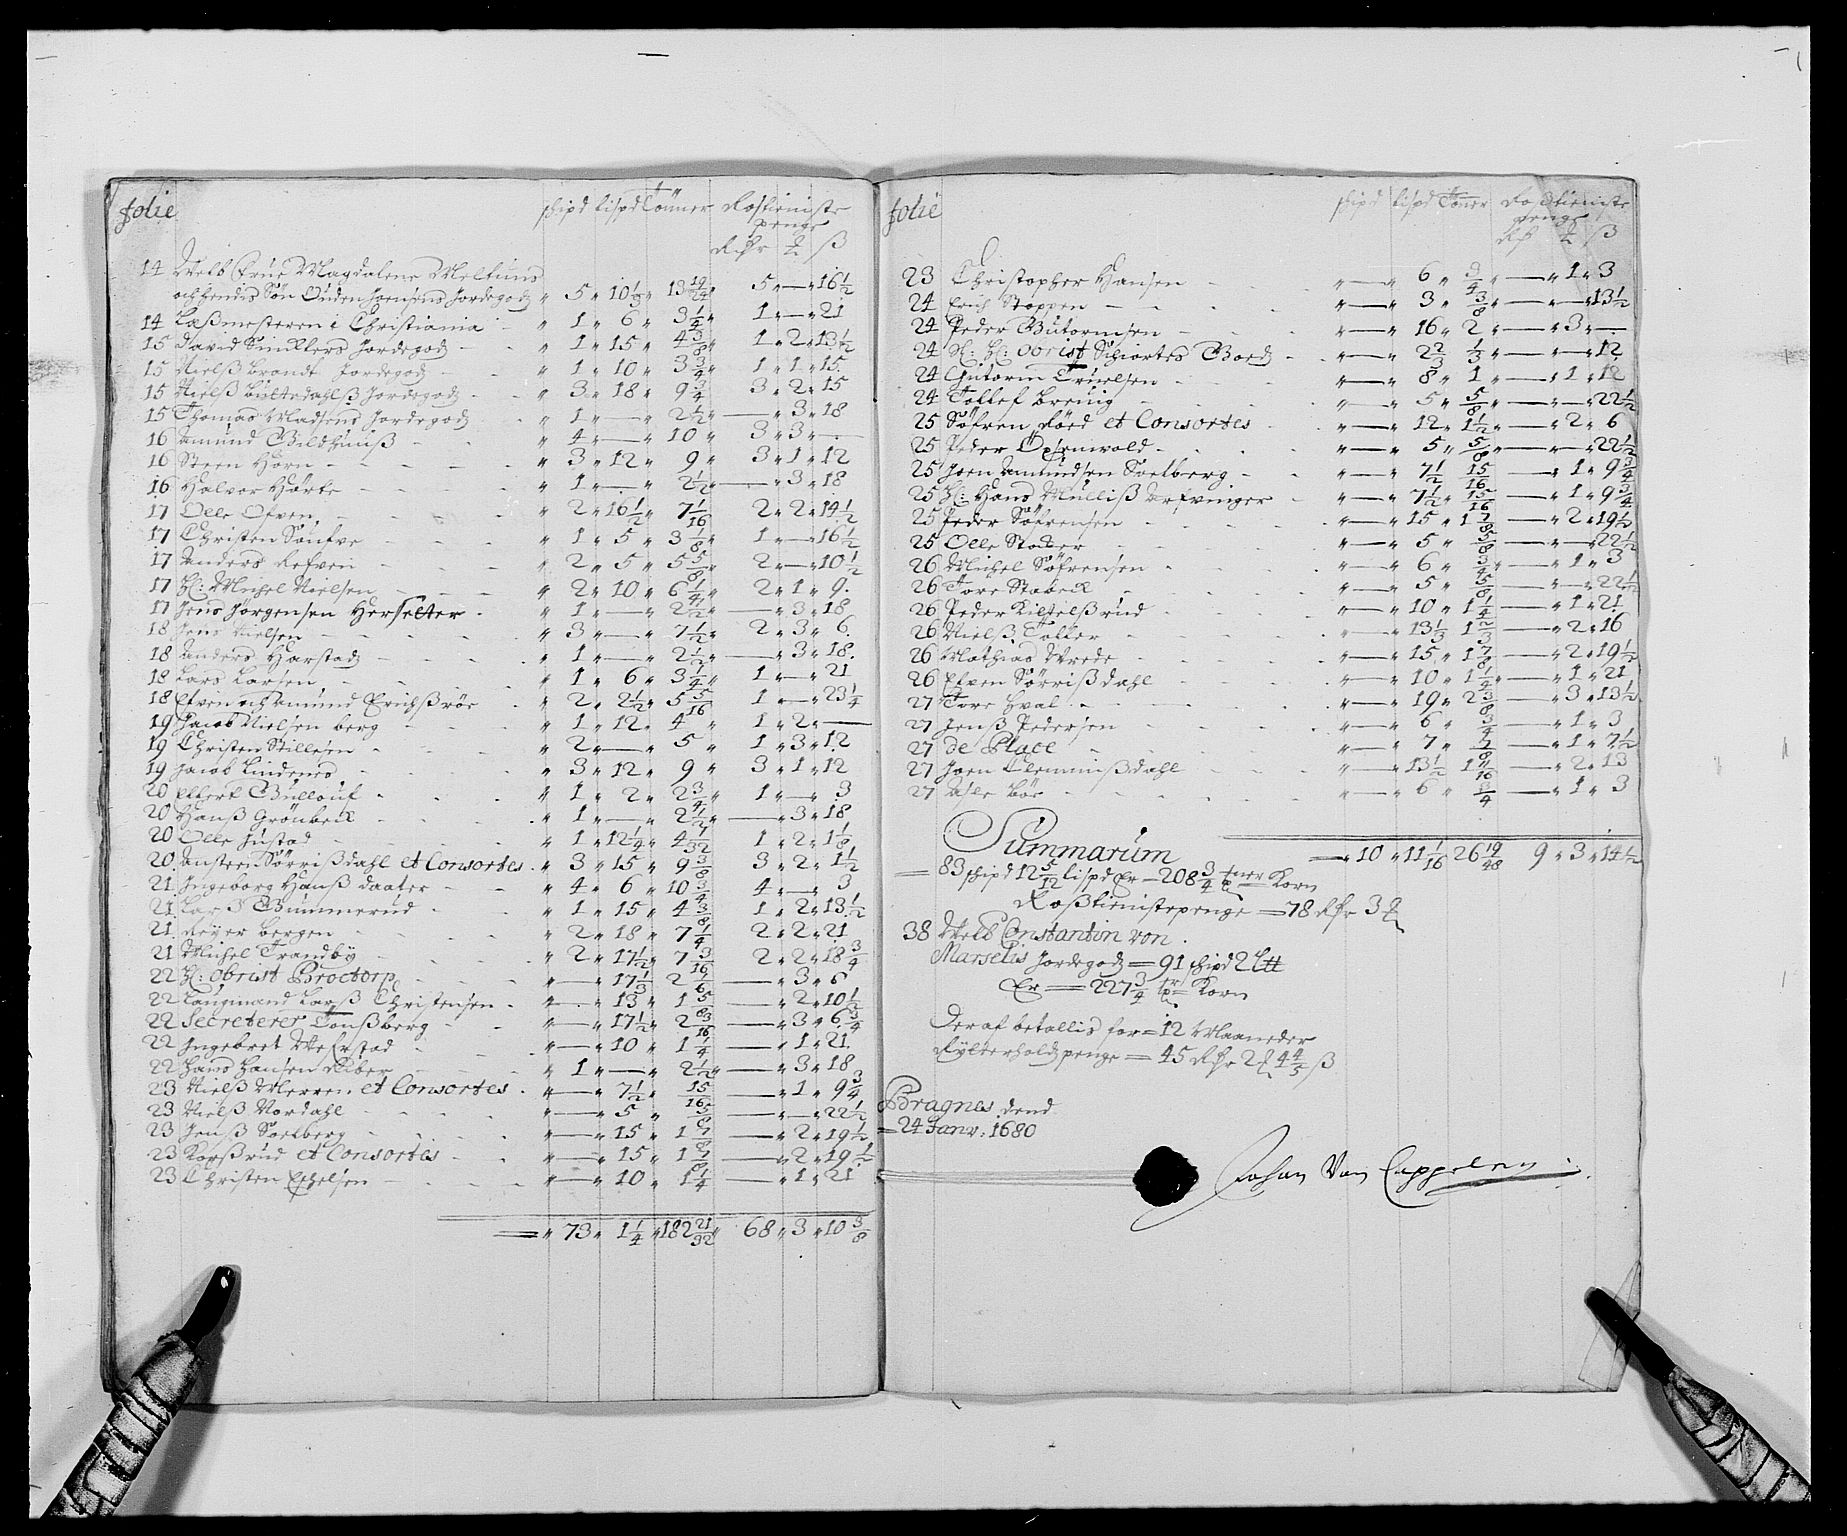 folie
shipd lispd Tönner Rostieniste
penge
Rdr ß
14 Welb frue Magdalene Meltuns
och hendis Søn Ouden Joensens Jordegodz 5 10 1/3 13 19/24 5 — 16 1/2
14 Læßmesteren i Christiania 1 6 3 1/4 1 — 21
15 David Sinklers Jordegodz 1 15 4 3/8 1 2 13 1/2
15 Nielß brandt Jordegodz 1 10 3 3/4 1 1 15
15 Nielß Jordegodz 3 18 9 3/4 3 2 15
15 Thomas Madsens Jordegodz 1 — 2 1/2 — 3 18
16 Amund Gildhuuß 4 — 10 3 3 —
16 Steen Horn 3 12 9 3 1 12
16 Halvor Hörte 1 — 2 1/2 — 3 18
17 Olle Ofven 2 16 1/2 7 1/16 2 2 14 1/2
17 Christen 1 5 3 1/8 1 — 16 1/2
17 Anders Refven 2 5 5 5/8 2 — 10 1/2
17 Hr: Michel Nielsen 2 10 6 1/4 2 1 9
17 Jens Jørgensen Herseter 1 — 2 1/2 — 3 18
18 Jens Nielsen 3 — 7 1/2 2 3 6
18 Anders Harstad 1 — 2 1/2 — 3 18
18 Lars Larsen 1 6 3 1/4 1 — 21
18 Efven och Amund Erichßröe 2 2 1/2 5 5/16 1 — 23 1/4
19 Jacob Nielsen berg 1 12 4 1 2 —
19 Christen Stillesen 2 — 5 1 3 12
19 Jacob Lindenes 3 12 9 3 1 12
20 Effert Gullouf 1 2 2 3/4 1 — 3
20 Hanß Grönbeck 1 — 2 1/2 — 3 18
20 Olle Justad 1 12 1/4 4 1/32 1 2 1 1/8
20 Ansten Sörrißdahl et Consortes 3 15 9 3/8 3 2 1 1/2
21 Ingeborg Hanß daater 4 6 10 3/4 4 — 3
21 Larß Gummerud 1 15 4 3/8 1 2 13 1/2
21 Reyer bergen 2 18 7 1/4 2 2 21
21 Michel Trandby 2 17 1/2 7 3/16 2 2 18 3/4
22 Hr: Obrist Broctorp — 17 1/3 2 1/6 — 3 6
22 Laugmand Larß Christensen — 13 1 5/8 — 2 10 1/2
22 Secreterer Tonßberg — 17 1/2 2 3/16 — 3 6 3/4
22 Ingebret Wefstad — 10 1 1/4 — 1 21
22 Hans Hansen Riber 1 — 2 1/2 — 3 18
23 Nielß Merren et Consortes — 7 1/2 15/16 — 1 9 3/4
23 Nielß Nordahl — 5 5/8 — — 22 1/2
23 Jenß Soelberg — 15 1 7/8 — 2 19 1/2
23 Korßrud et Consortes — 15 1 7/8 — 2 19 1/2
23 Christen Eskelsen — 10 1 1/4 — 1 21
73 1 1/4 182 21/32 68 3 10 3/8
folie
shipd lispd Tönner Roßtieniste
penge
Rdr ß
23 Christopher Hansen — 6 3/4 — 1 3
24 Erich Stoppen — 3 3/8 — — 13 1/2
24 Peder Gutormsen — 16 2 — 3 —
24 Sl: Hr: Obrist Schiortes Gord — 2 2/3 1/3 — — 12
24 Gutorm Truelsen — 8 1 — 1 12
24 Tollef brenig — 5 5/8 — — 22 1/2
25 Söfren röed et Consortes — 12 1 1/2 — 2 6
25 Peder — 5 5/8 — — 22 1/2
25 Joen Amundsen Soelberg — 7 1/2 15/16 — 1 9 3/4
25 Hr: Hans Mulliß Arfvinger — 7 1/2 15/16 — 1 9 3/4
25 Peder Söfrensen — 15 1 7/8 — 2 19 1/2
25 Olle Stocker — 5 5/8 — — 22 1/2
26 Michel Söfrensen — 6 3/4 — 1 3
26 Tore Stabeck — 5 5/8 — — 22 1/2
26 Peder Kieldßrud — 10 1 1/4 — 1 21
26 Nielß Toller — 13 1/3 1 2/3 — 2 16
26 Mathias Wrede — 15 1 7/8 — 2 19 1/2
26 Efven Sörrißdahl — 10 1 1/4 — 1 21
27 Tore Hval — 19 2 3/8 — 3 13 1/2
27 Jenß Pedersen — 6 3/4 — 1 3
27 de Place — 7 7/8 — 1 7 1/2
27 Joen Clemmißdahl — 13 1/2 1 11/16 — 2 13
27 Asle böe — 6 3/4 — 1 3
Summarum — 10 11 1/16 26 19/48 9 3 14 1/2
= 83 shipd 12 5/12 lispd Er — 208 3/4 tner Korn
Roßtienistepenge = 78 Rdr 3
38 Welb Constantin von
Marselis Jordegodz = 91 shipd 2
Er = 227 3/4 tr Korn
Deraf betallis for = 12 Maaneder
Rytterholdzpenge = 45 Rdr 2 4 4/5 ß
Bragnes dend
= 24 Janv: 1680
Johan Von Cappelen